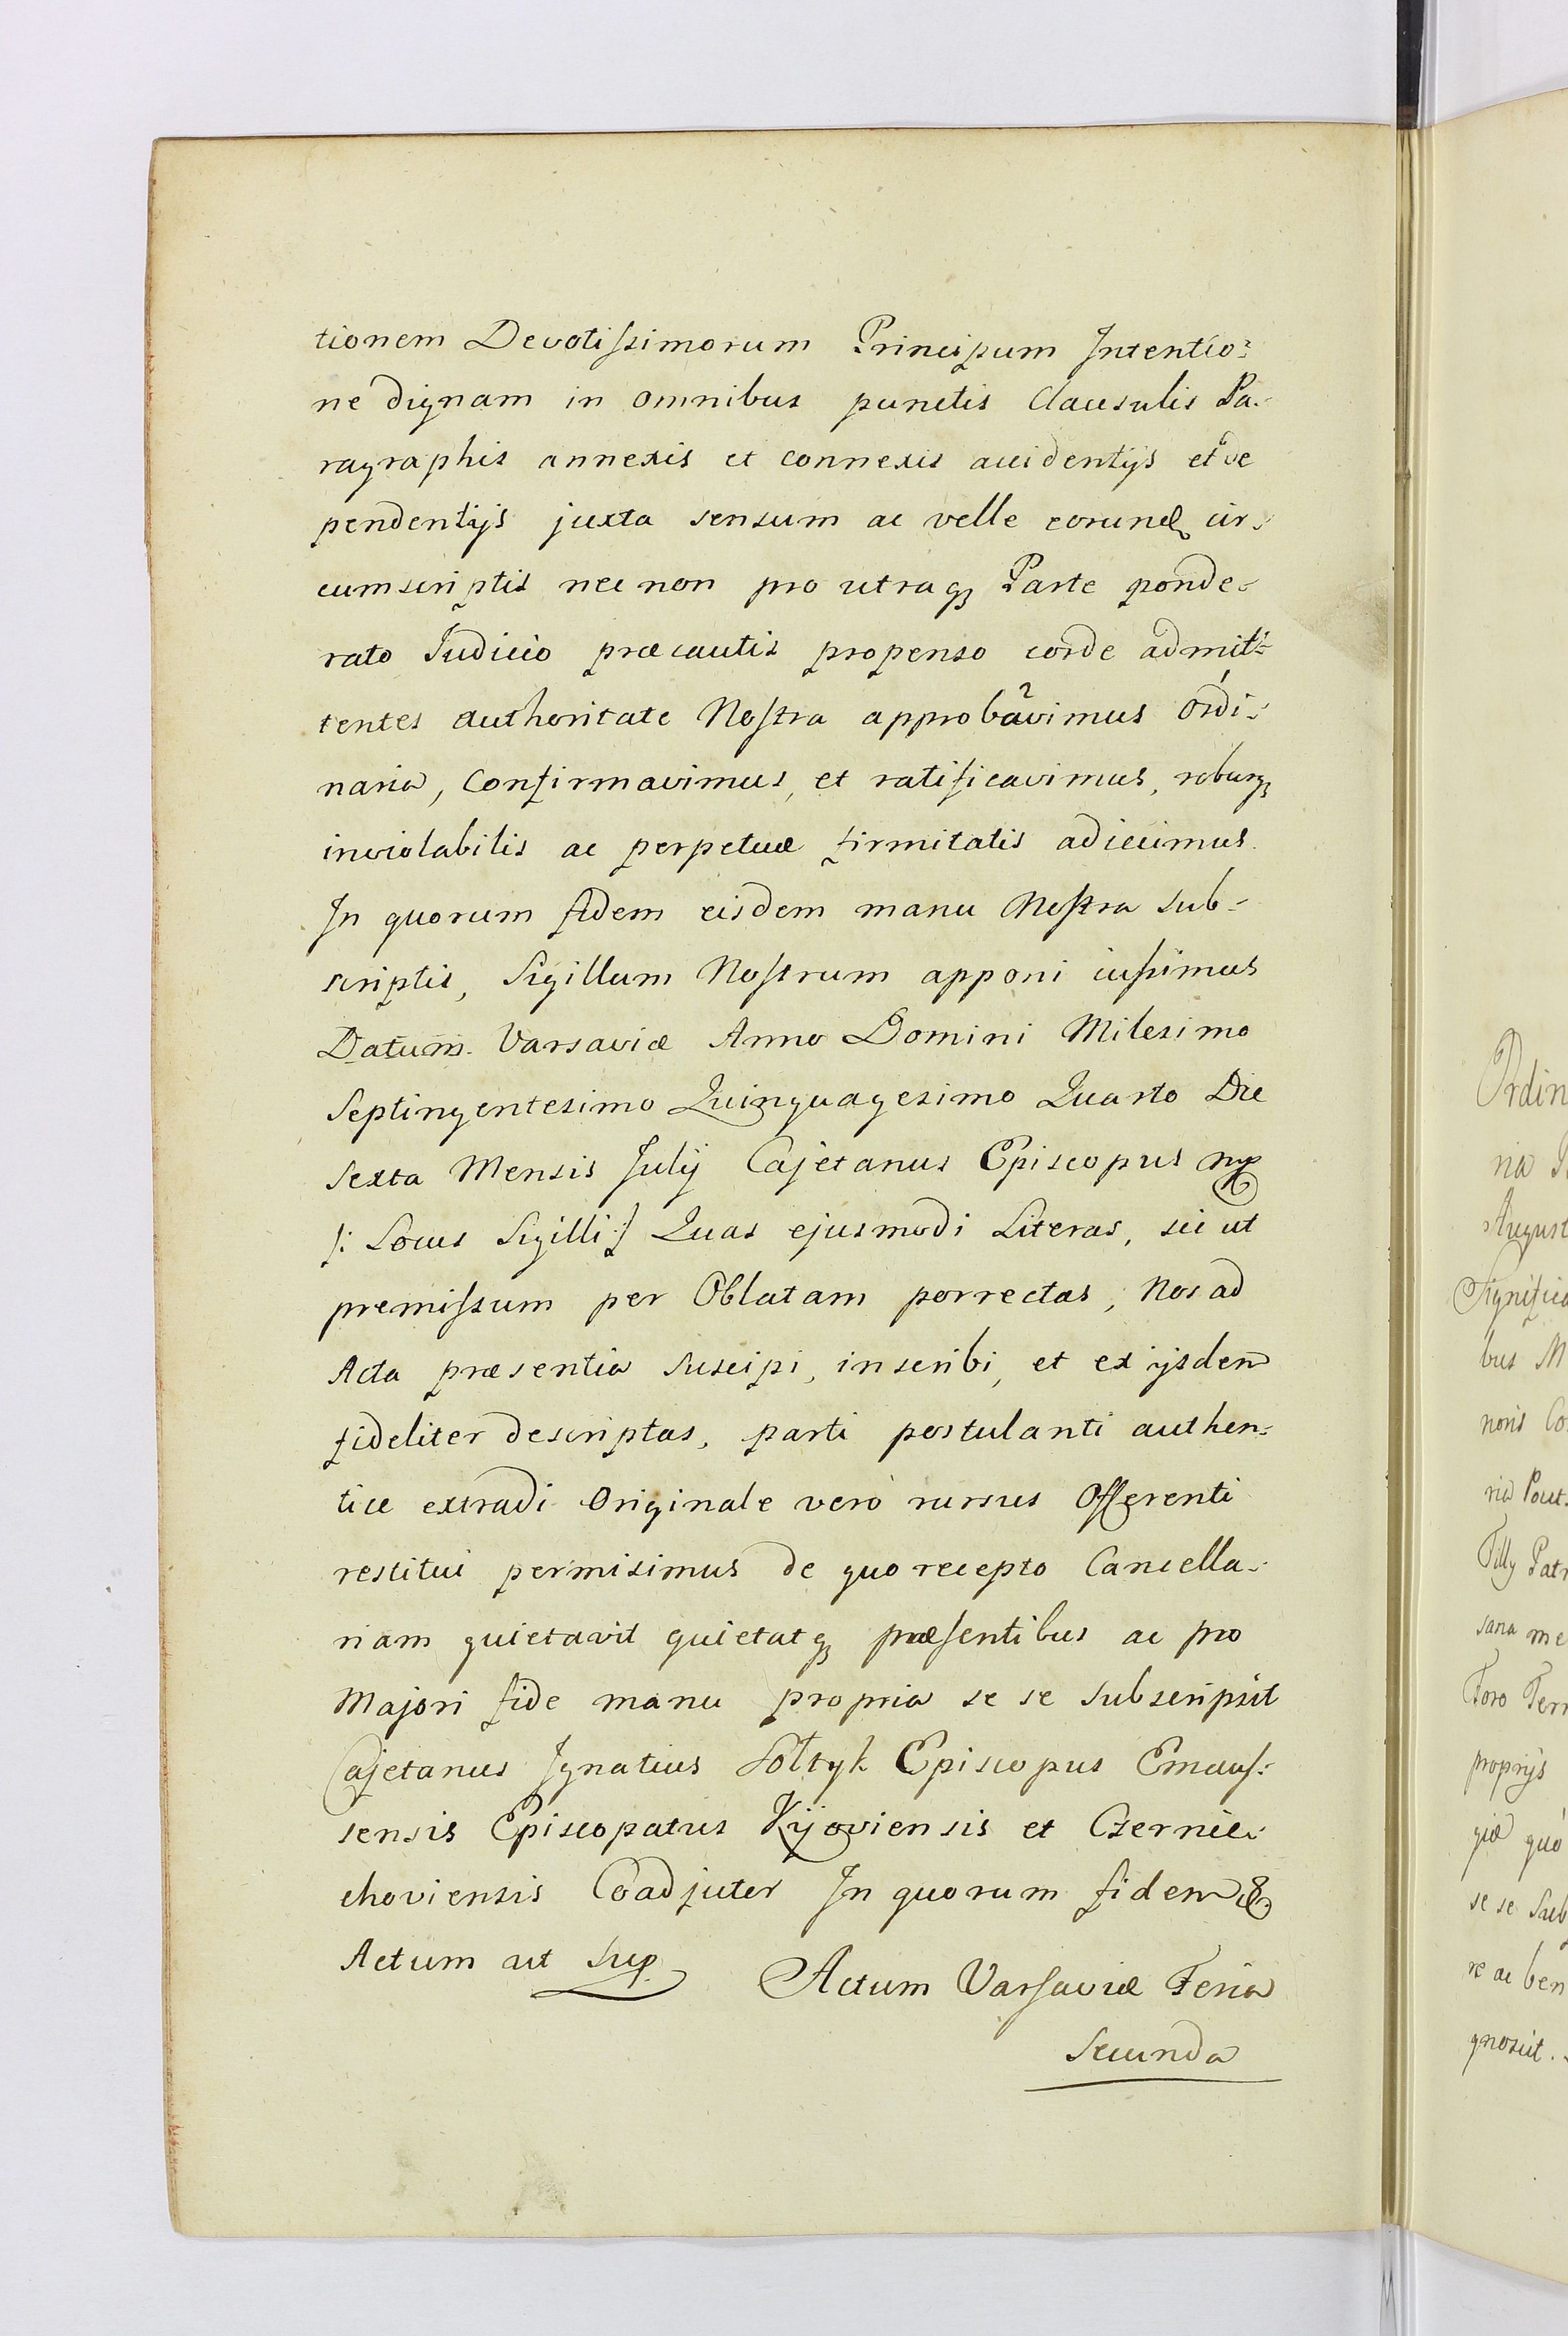 tionem Devotissimorum Principum Intentio-
ne dignam in omnibus punctis Clausulis Pa-
ragraphis annexis et connexis accidentijs et de
pendentijs juxta sensum ac velle eorund cir-
cumscriptis nec non pro utraq Parte ponde-
rato Iudicio præcautis propenso corde admit-
tentes authoritate Nostra approbavimus Ordi-
naria, Confirmavimus, et ratificavimus, roburq
inviolabilis ac perpetuæ firmitatis adiecimus.
In quorum fidem eisdem manu Nostra sub-
scriptis, Sigillum Nostrum apponi iussimus
Datum. Varsaviæ Anno Domini Milesimo
Septingentesimo Quinquagesimo Quarto Die
Sexta Mensis Julij Cajetanus Episcopus mp
/: Locus Sigilli :/ Quas ejusmodi Literas, sic ut
premissum per Oblatam porrectas, Nos ad
Acta præsentia Suscipi, inscribi, et ex ijsdem
fideliter descriptas, parti postulanti authen-
tice extradi Originale verò rursus Offerenti
restitui permisimus de quo recepto Cancella-
riam quietavit quietatq præsentibus ac pro
Majori fide manu propria se se subscripsit
Cajetanus Ignatius Soltyk Episcopus Emaus-
sensis Episcopatus Kijoviensis et Czernie-
choviensis Coadjutor In quorum fidem &
Actum ut Sup. Actum Varsaviæ Feria
Secunda
Ordin
ria
August
Significa
bus M
noris Co
ria Pout
Tilly Patr
sana me
Foro Terr
proprijs
giæ quo
se se Sub
re ac ben
gnovit.